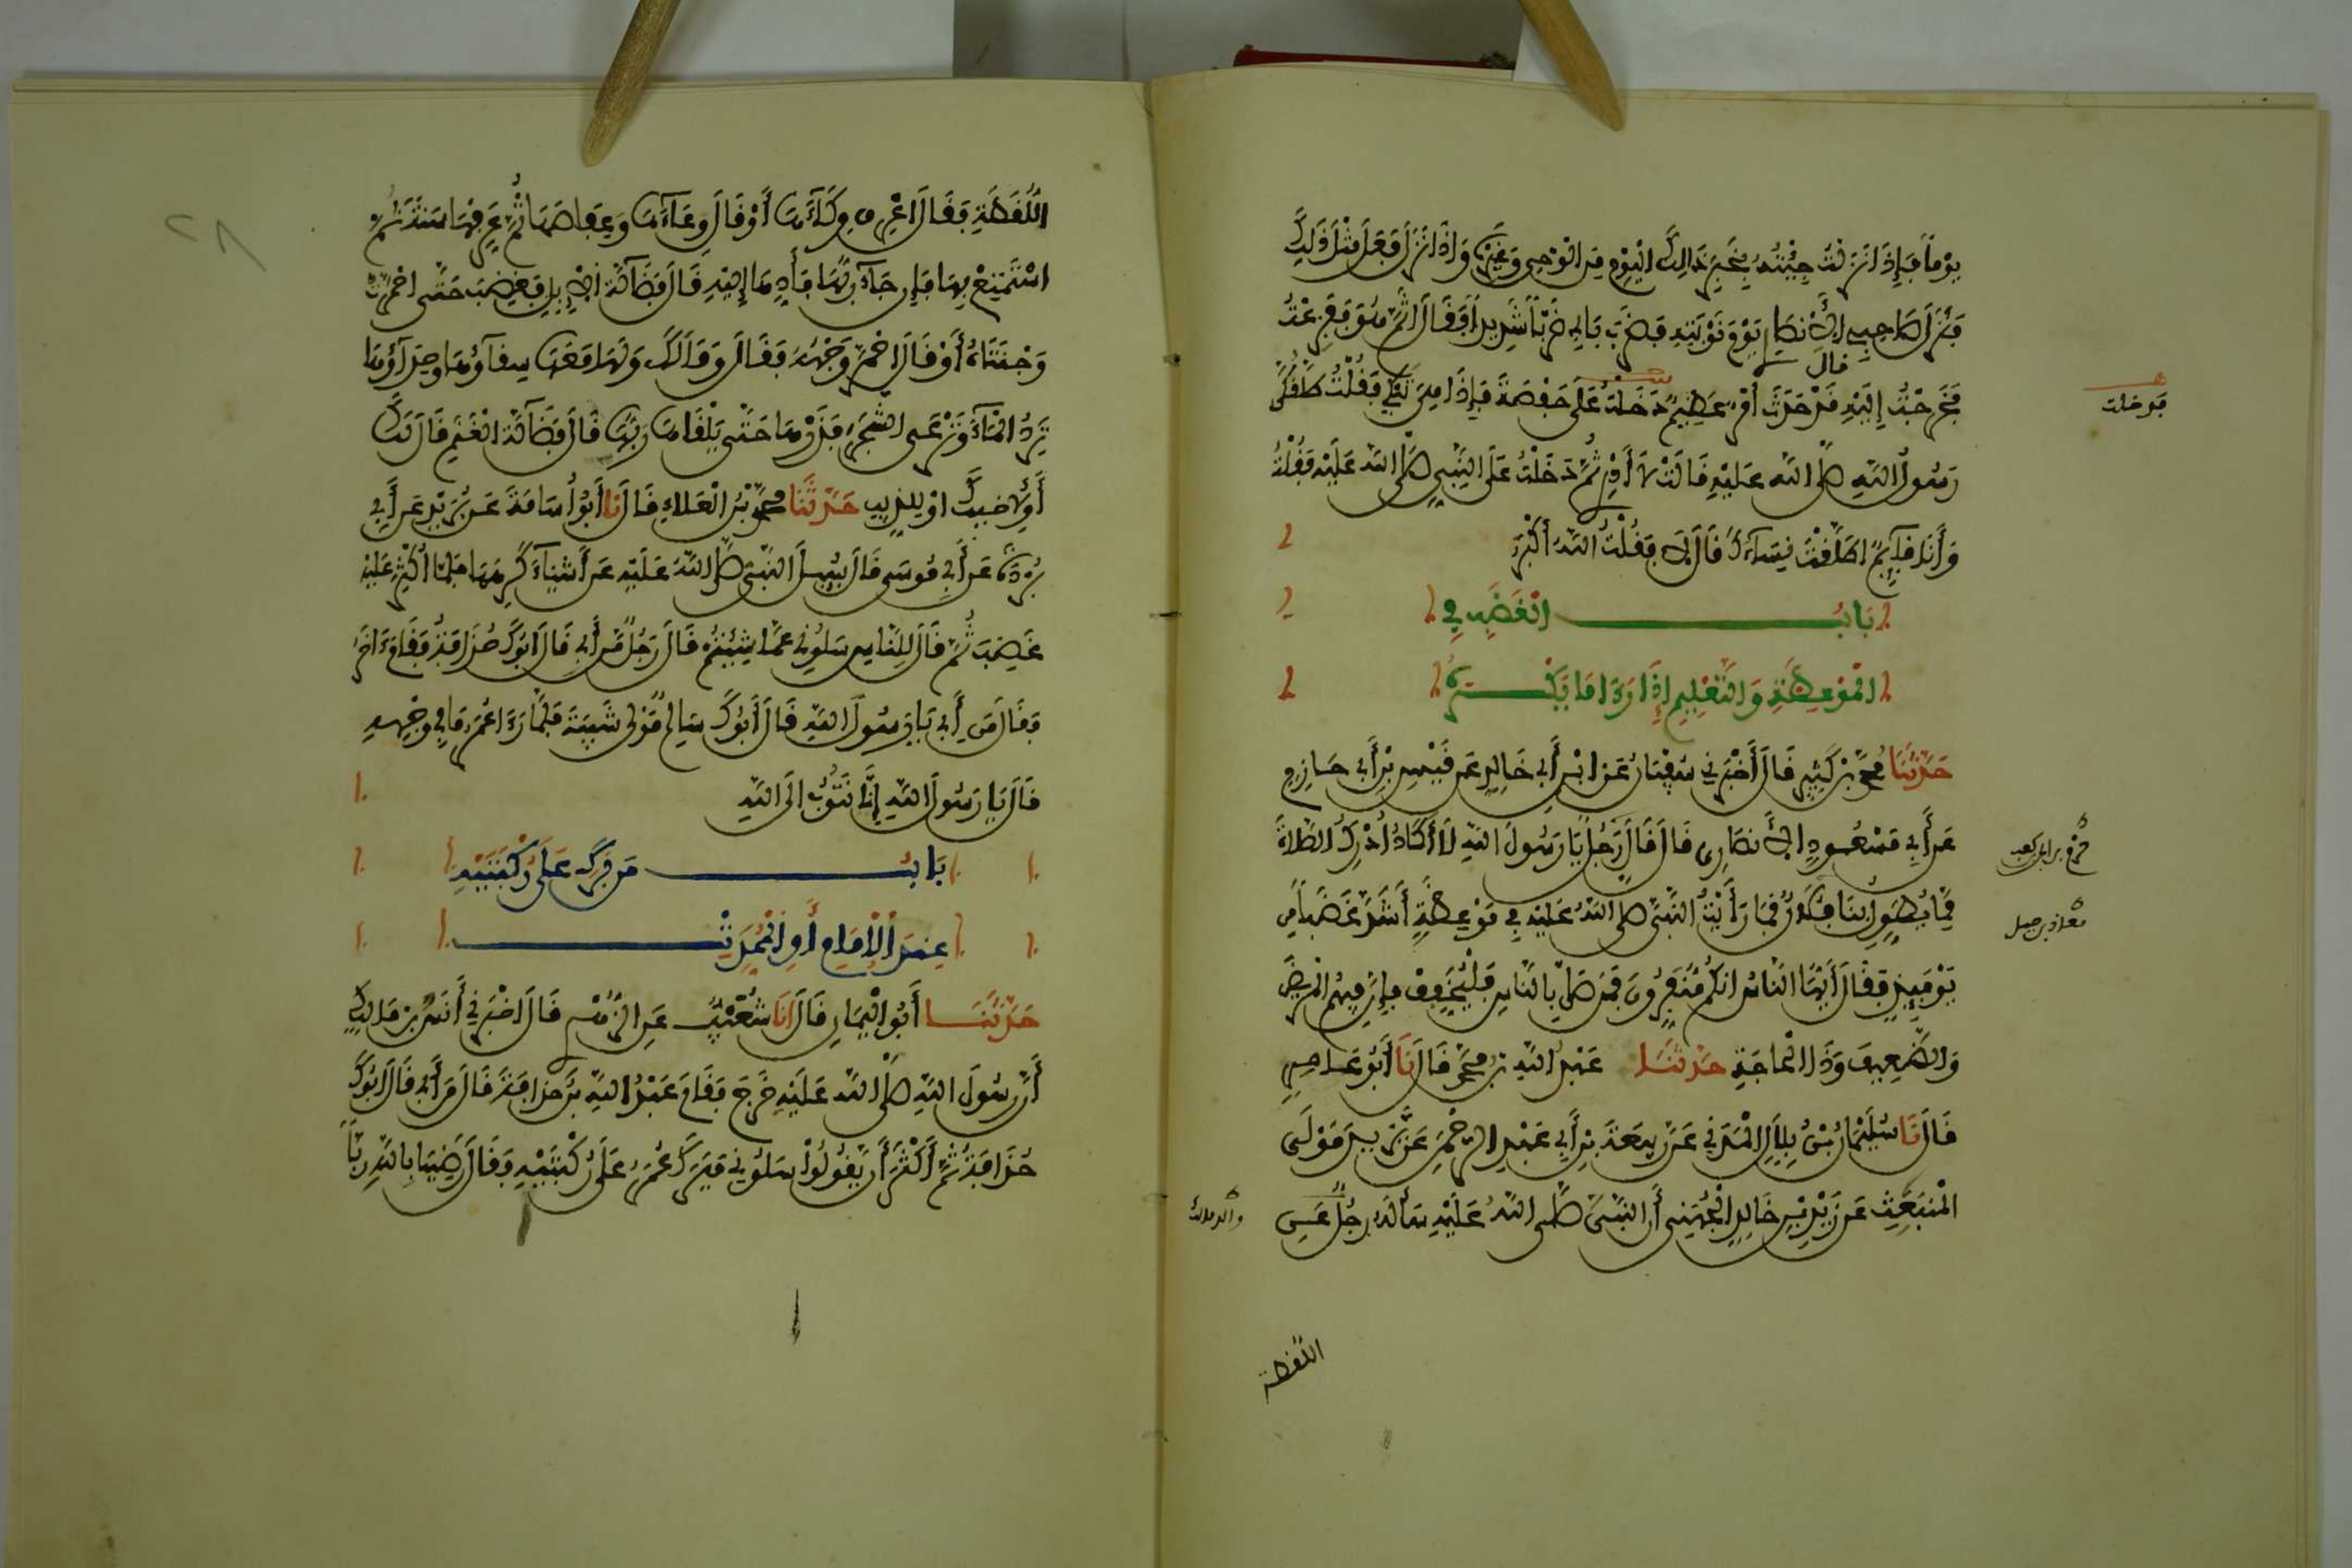 يَوْماً فَإِذَا نَزَلْتُ جِئْتُهُ بِخَبَرِ ذَالِكَ الْيَوْمِ مِنَ الْوَحْيِ وَغَيْرِهِ وَإِذَا نَزَلَ فَعَلَ مِثْلَ ذَلِكَ
فَنَزَلَ صَاحِبِي الأَنْصَارِيُّ يَوْمَ نَوْبَتِهِ فَضَرَبَ بَابِي ضَرْباً شَدِيداً فَقَالَ أَثَمَّ هُوَ فَفَزِعْتُ
قال
فَخَرَجْتُ إِلَيْهِ قَدْ حَدَثَ أَمْرٌ عَظِيمٌ دَخَلْتُ عَلَى حَفْصَةَ فَإِذَا هِيَ تَبْكِي فَقُلْتُ طَلَّقَكُنَّ
فدخلت
رَسُولُ اللَّهِ صَلَّى اللَّهُ عَلَيْهِ قَالَتْ لاَ أَدْرِي ثُمَّ دَخَلْتُ عَلَى النَّبِيِّ صَلَّى اللَّهُ عَلَيْهِ فَقُلْتُ
وَأَنَا قَائِمٌ أَطَلَّقْتَ نِسَاءَكَ قَالَ لاَ فَقُلْتُ اللَّهُ أَكْبَرُ
بَابُ الْغَضَبِ فِي
الْمَوْعِظَةِ وَالتَّعْلِيمِ إِذَا رَءَا مَا يَكْرَهُ
حَدَّثَنَا مُحَمَّدُ بْنُ كَثِيرٍ قَالَ أَخْبَرَنِي سُفْيَانُ عَنِ ابْنِ أَبِي خَالِدٍ عَنْ قَيْسِ بْنِ أَبِي حَازِمٍ
عَنْ أَبِي مَسْعُودٍ الأَنْصَارِي قَالَ قَالَ رَجُلٌ يَا رَسُولَ اللَّهِ لاَ أَكَادُ أُدْرِكُ الصَّلاَةَ
حزم بن ابي كعب
مِمَّا يُطَوِّلُ بِنَا فُلاَنٌ فَمَا رَأَيْتُ النَّبِيَّ صَلَّى اللَّهُ عَلَيْهِ فِي مَوْعِظَةٍ أَشَدَّ غَضَباً مِنْ
معاذ بن جبل
يَوْمَئِذٍ فَقَالَ أَيُّهَا النَّاسُ إِنَّكُمْ مُنَفِّرُونَ فَمَنْ صَلَّى بِالنَّاسِ فَلْيُخَفِّفْ فَإِنَّ فِيهِمُ الْمَرِيضَ
وَالضَّعِيفَ وَذَا الْحَاجَةِ حَدَّثَنَا عَبْدُ اللَّهِ بْنُ مُحَمَّدٍ قَالَ نَا أَبُو عَامِرٍ
قَالَ نَا سُلَيْمَانُ بْنُ بِلاَلٍ الْمَدَنِي عَنْ رَبِيعَةَ بْنِ أَبِي عَبْدِ الرَّحْمَنِ عَنْ يَزِيدَ مَوْلَى
الْمُنْبَعِثِ عَنْ زَيْدِ بْنِ خَالِدٍ الْجُهَنِي أَنَّ النَّبِيَّ صَلَّى اللَّهُ عَلَيْهِ سَأَلَهُ رَجُلٌ عَنِ
اللقطة
اللُّقَطَةِ فَقَالَ اعْرِفْ وِكَاءَهَا أَوْ قَالَ وِعَاءَهَا وَعِفَاصَهَا ثُمَّ عَرِّفْهَا سَنَةً ثُمَّ
اسْتَمْتِعْ بِهَا فَإِنْ جَاءَ رَبُّهَا فَأَدِّهَا إِلَيْهِ قَالَ فَضَالَّةُ الإِبِلِ فَغَضِبَ حَتَّى احْمَرَّتْ
وَجْنَتَاهُ أَوْ قَالَ احْمَرَّ وَجْهُهُ فَقَالَ وَمَا لَكَ وَلَهَا مَعَهَا سِقَاؤُهَا وَحِذَاؤُهَا
تَرِدُ الْمَاءَ وَتَرْعَى الشَّجَرَ فَذَرْهَا حَتَّى يَلْقَاهَا رَبُّهَا قَالَ فَضَالَّةُ الْغَنَمِ قَالَ لَكَ
أَوْ لأَخِيكَ أَوْ لِلذِّيبِ حَدَّثَنَا مُحَمَّدُ بْنُ الْعَلاَءِ قَالَ نَا أَبُو أُسَامَةَ عَنْ بُرَيْدٍ عَنْ أَبِي
بُرْدَةَ عَنْ أَبِي مُوسَى قَالَ سُيِلَ النَّبِيُّ صَلَّى اللَّهُ عَلَيْهِ عَنْ أَشْيَاءَ كَرِهَهَا فَلَمَّا أُكْثِرَ عَلَيْهِ
غَضِبَ ثُمَّ قَالَ لِلنَّاسِ سَلُونِي عَمَّا شِيْتُمْ قَالَ رَجُلٌ مَنْ أَبِي قَالَ أَبُوكَ حُذَافَةُ فَقَامَ ءَاخَرُ
فَقَالَ مَنْ أَبِي يَا رَسُولَ اللَّهِ قَالَ أَبُوكَ سَالِمٌ مَوْلَى شَيْبَةَ فَلَمَّا رَءَا عُمَرُ مَا فِي وَجْهِهِ
قَالَ يَا رَسُولَ اللَّهِ إِنَّا نَتُوبُ إِلَى اللَّهِ
بَابُ مَنْ بَرَكَ عَلَى رُكْبَتَيْهِ
عِنْدَ الإِمَامِ أَوِ الْمُحَدِّثِ
حَدَّثَنَا أَبُو الْيَمَانِ قَالَ أَنَا شُعَيْبٌ عَنِ الزُّهْرِي قَالَ أَخْبَرَنِي أَنَسُ بْنُ مَالِكٍ
أَنَّ رَسُولَ اللَّهِ صَلَّى اللَّهُ عَلَيْهِ خَرَجَ فَقَامَ عَبْدُ اللَّهِ بْنُ حُذَافَةَ قَالَ مَنْ أَبِي قَالَ أَبُوكَ
حُذَافَةُ ثُمَّ أَكْثَرَ أَنْ يَقُولُوا سَلُونِي فَبَرَكَ عُمَرُ عَلَى رُكْبَتَيْهِ فَقَالَ رَضِينَا بِاللَّهِ رَبّاً